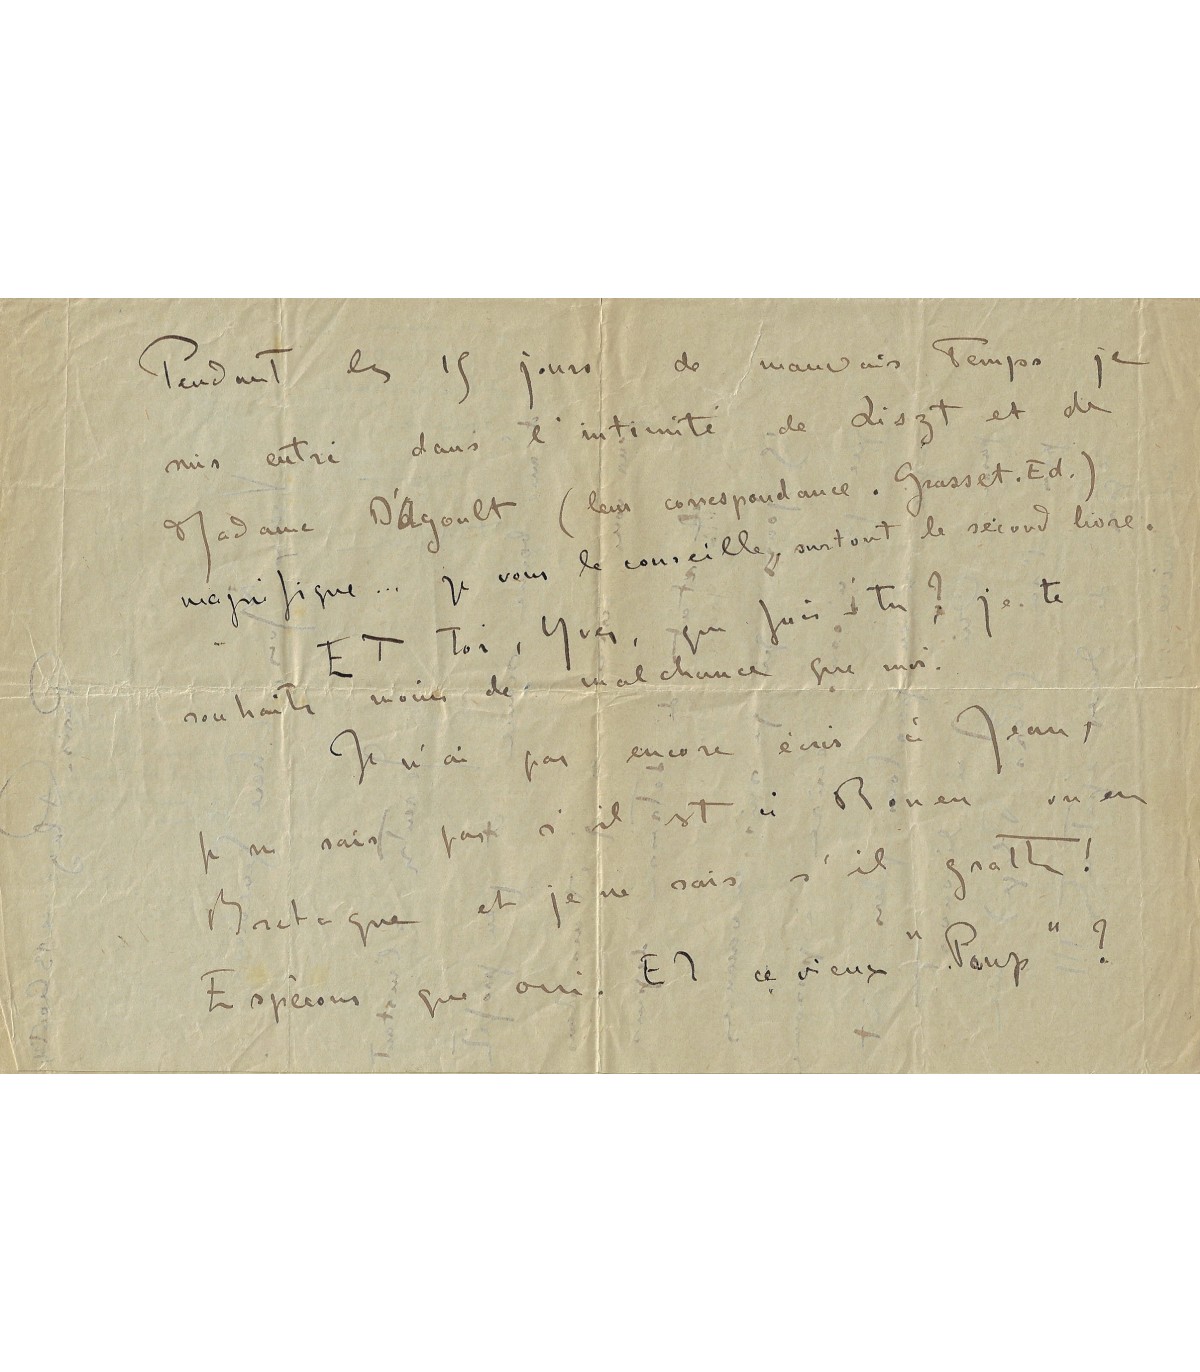 Pendant les 15 jours de mauvais Temps je
suis entré dans l'intimité de Liszt et de
Madame D'Agoult (leur correspondance. Grasset. Ed.)
magnifique... je vous le conseille, surtout le second livre.
ET Toi, Yves, que fais-tu? je te
souhaite moins de malchance que moi.
Je n'ai pas encore écris à Jean,
je ne sais pas s'il est à Rouen ou en
Bretagne et je ne sais s'il gratte!
Espérons que oui. ET ce vieux "Poup"?